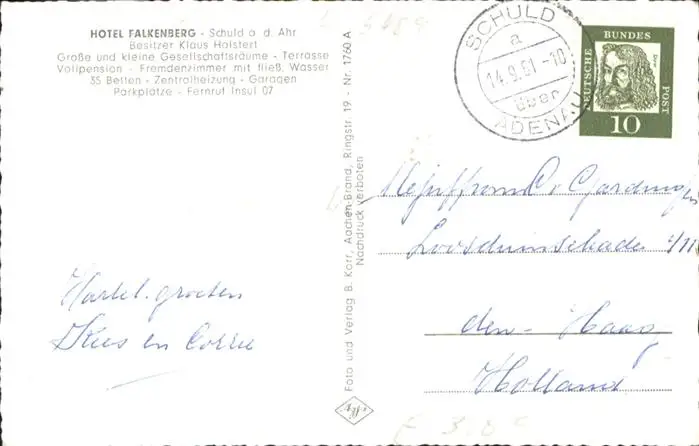 HOTEL FALKENBERG - Schuld a. d. Ahr
Besitzer Klaus Halstert
Große und kleine Gesellschaftsräume - Terrasse
Vollpension - Fremdenzimmer mit fließ. Wasser
35 Betten - Zentralheizung - Garagen
Parkplätze - Fernruf Insul 07
Hartel. groeten
Kees en Corrie
Foto und Verlag B. Korr, Aachen-Brand, Ringstr. 19 - Nr. 1760 A
Nachdruck verboten
SCHULD
a
14.9.61-10
über
ADENAU
DEUTSCHE BUNDESPOST
10
Mejuffrouw C. v. Garding
den Haag
Holland